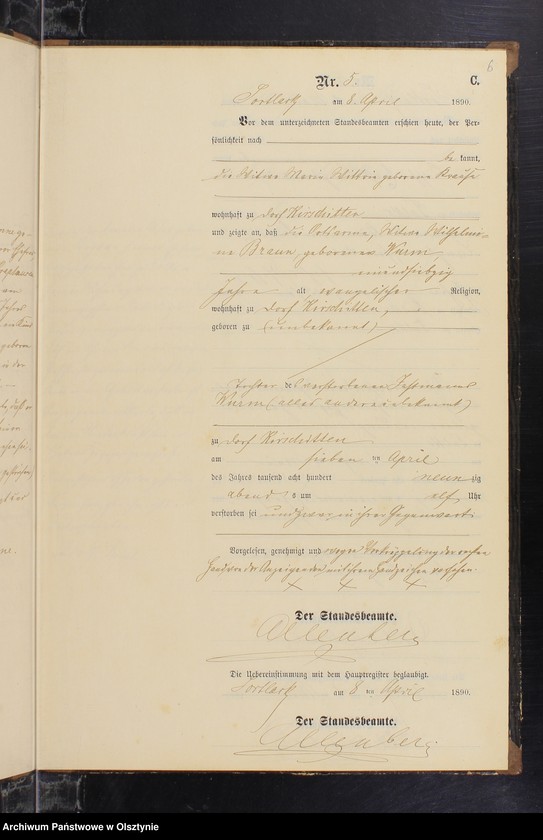 6
Nr. 5. C.
Sortlack am 8. April 1890.
Vor dem unterzeichneten Standesbeamten erschien heute, der Per-
sönlichkeit nach
be kannt,
die Witwe Maria Wittrin geborene Krause
wohnhaft zu Dorf Kirschitten
und zeigte an, daß die Witwe Wilhelmi-
ne Braun, geborene Wurm
einundsiebzig
Jahre alt, evangelischer Religion,
wohnhaft zu Dorf Kirschitten,
geboren zu (unbekannt)
Tochter des verstorbenen
Wurm (alles andere unbekannt)
zu Dorf Kirschitten
am sieben ten April
des Jahres tausend acht hundert neun zig
abend s um elf Uhr
verstorben sei und zwar in ihrer Gegenwart
Vorgelesen, genehmigt und wegen Verkrüppelung der rechten
Hand von der Anzeigenden mit ihrem Handzeichen versehen.
+ + +
Der Standesbeamte.
Allenberg
Die Uebereinstimmung mit dem Hauptregister beglaubigt.
Sortlack am 8 ten April 1890.
Der Standesbeamte.
Allenberg
Archiwum Państwowe w Olsztynie